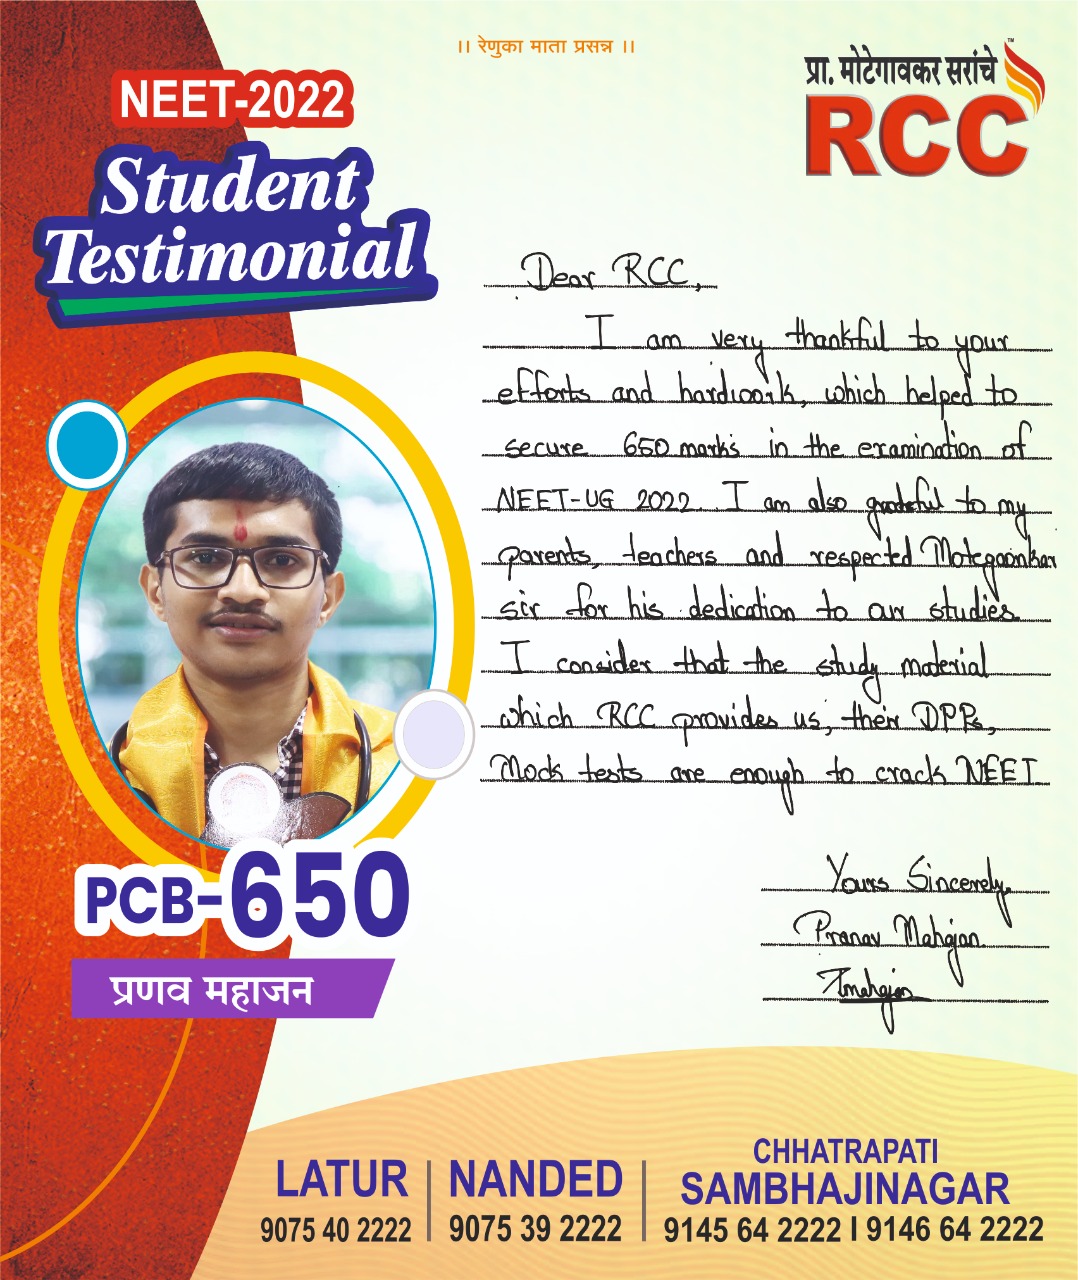 ।। रेणुका माता प्रसन्न ।।
NEET-2022
Student
Testimonial
प्रा. मोटेगावकर सरांचे
RCC
TM
Dear RCC,
I am very thankful to your
efforts and hardwork, which helped to
secure 650 marks in the examination of
NEET-UG 2022. I am also grateful to my
parents, teachers and respected Motegaonkar
sir for his dedication to our studies.
I consider that the study material
which RCC provides us, their DPPs,
Mock tests are enough to crack NEET
Yours Sincerely,
Pranav Mahajan
Pmahajan
PCB-650
प्रणव महाजन
LATUR
9075 40 2222
NANDED
9075 39 2222
CHHATRAPATI
SAMBHAJINAGAR
9145 64 2222 I 9146 64 2222